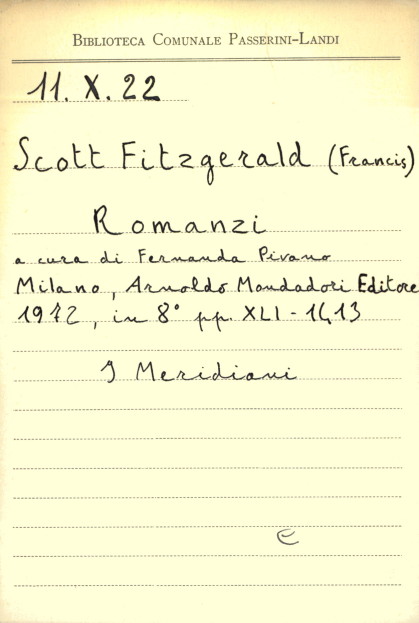 BIBLIOTECA COMUNALE PASSERINI-LANDI
11. X. 22
Scott Fitzgerald (Francis)
Romanzi
a cura di Fernanda Pivano
Milano, Arnoldo Mondadori Editore
1972, in 8° pp. XLI - 1413
I Meridiani
e